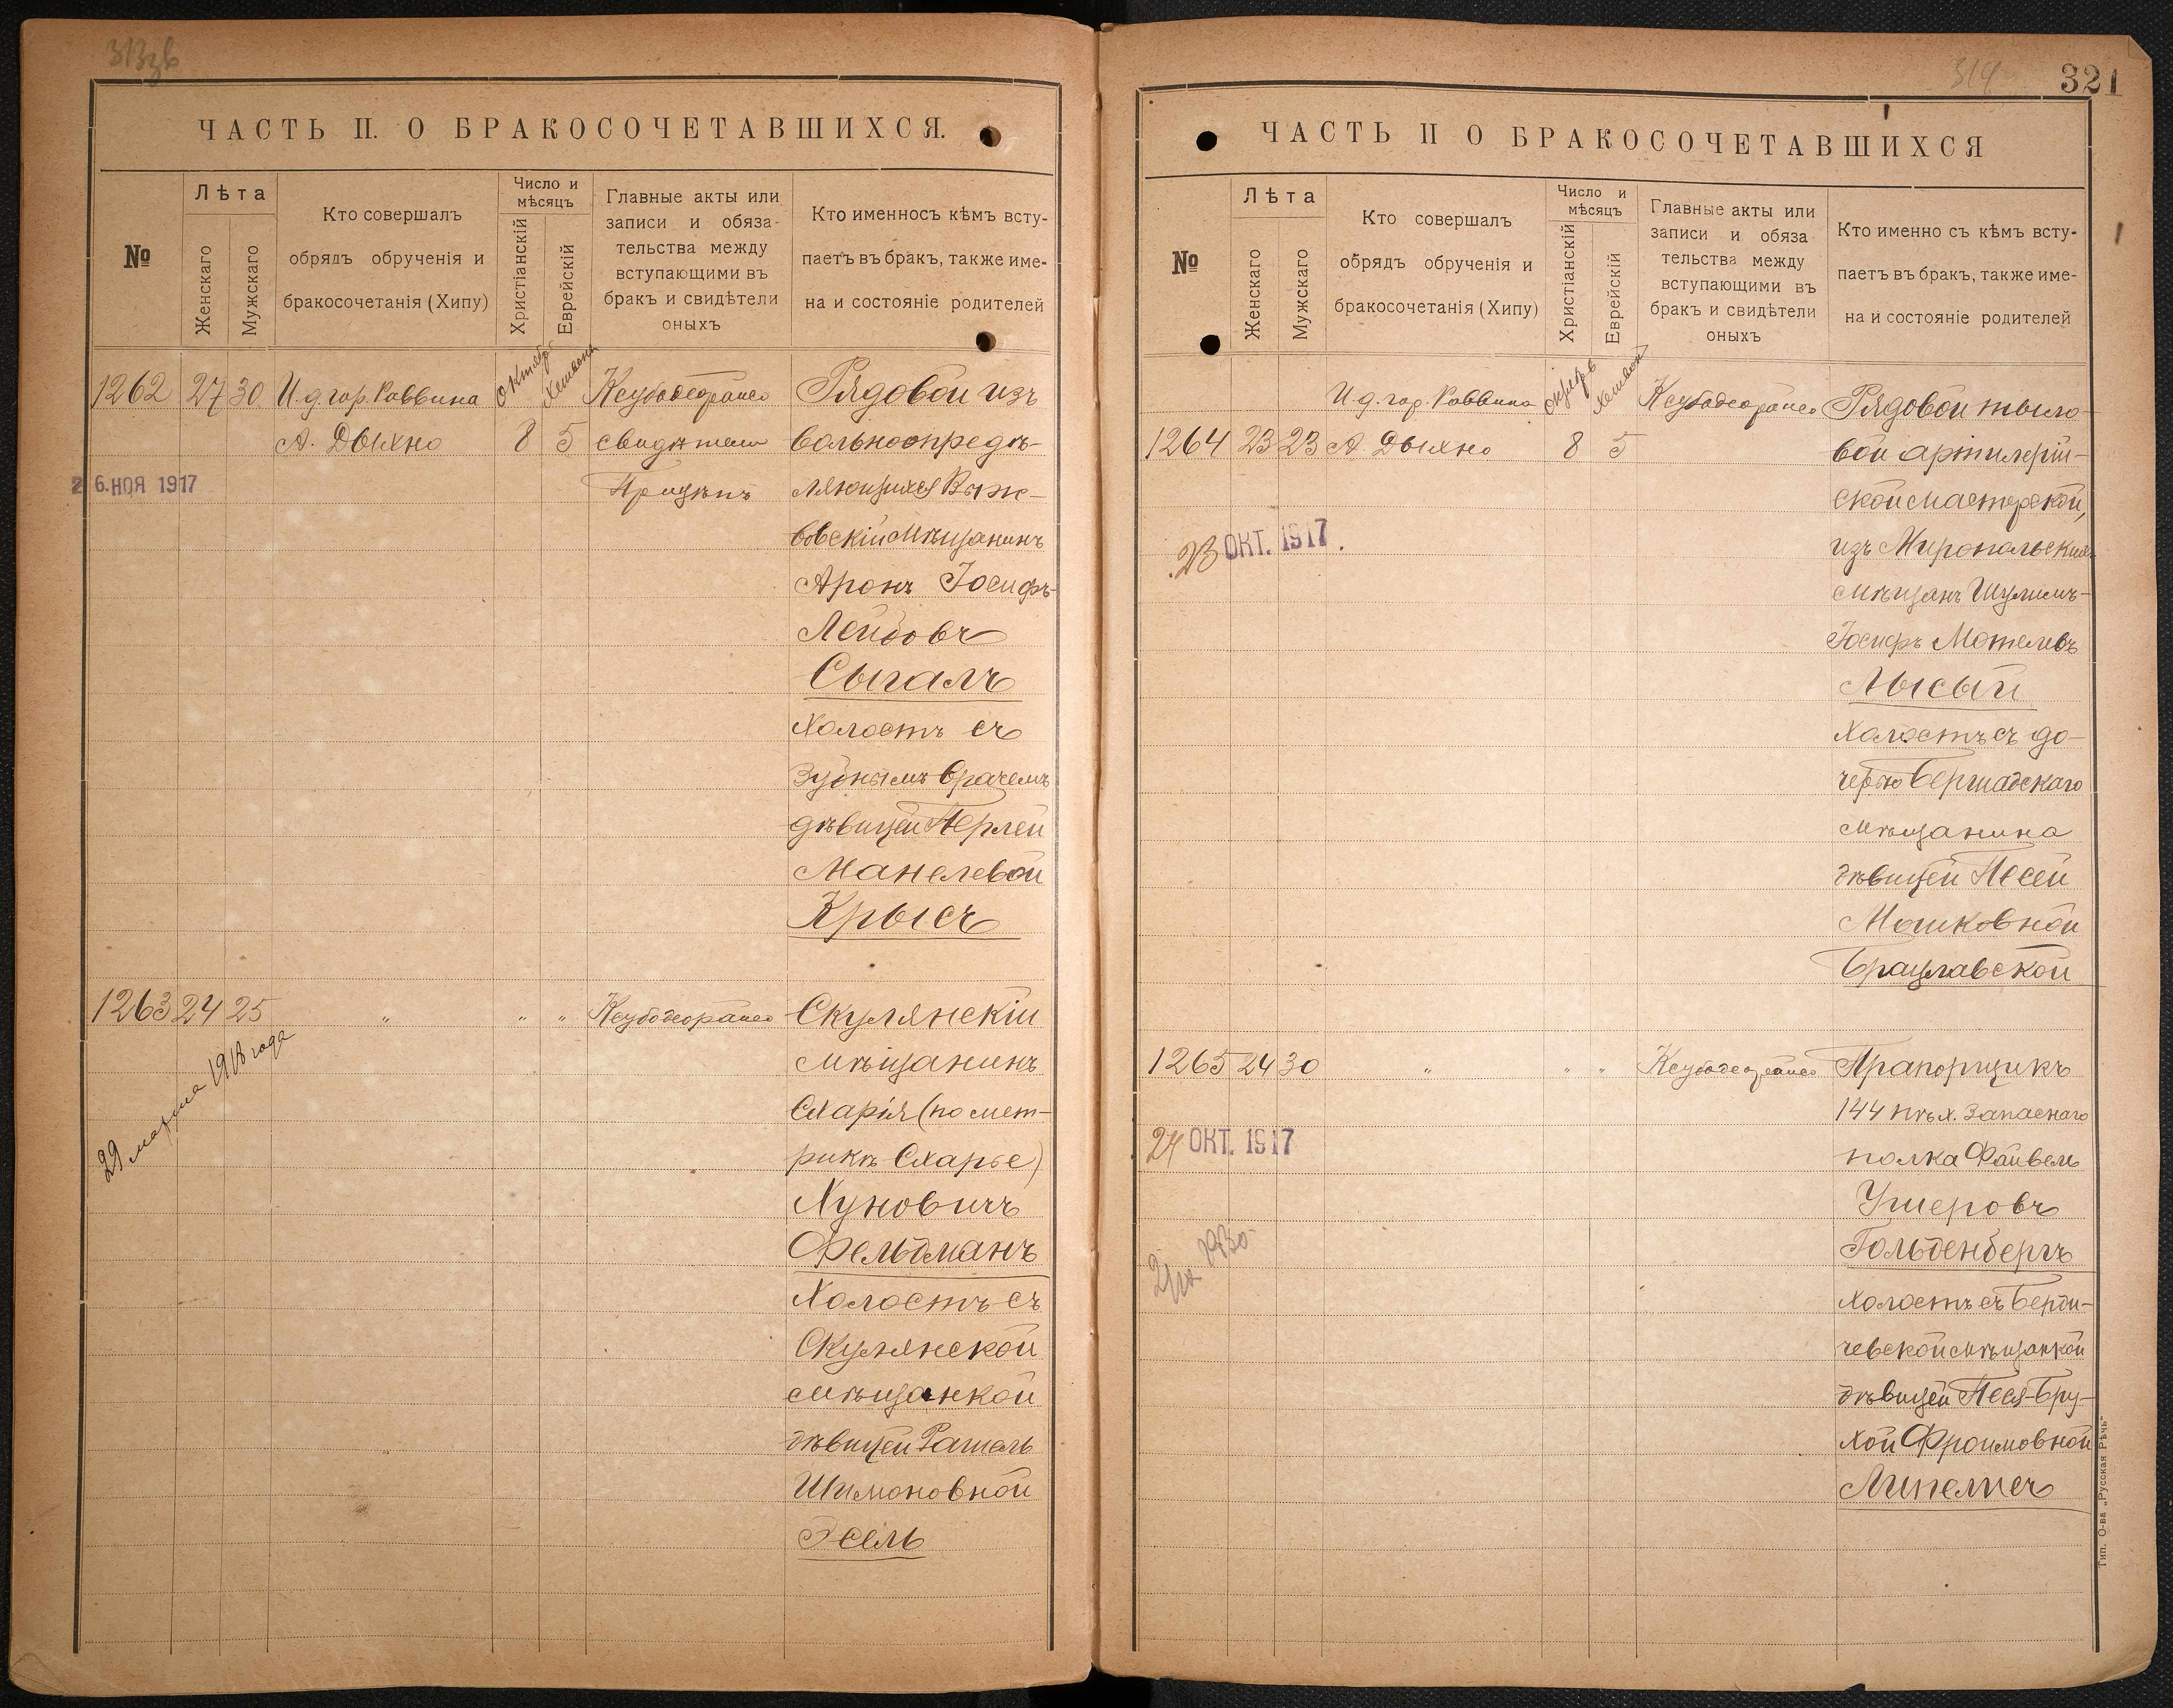 313 зв
ЧАСТЬ II. О БРАКОСОЧЕТАВШИХСЯ.
№
Лѣта
Женскаго
Мужскаго
Кто совершалъ
обрядъ обрученія и
бракосочетанія (Хипу)
Число и
мѣсяцъ
Христіанскій
Еврейскій
Главные акты или
записи и обяза-
тельства между
вступающими въ
бракъ и свидѣтели
оныхъ
Кто именносъ кѣмъ всту-
паетъ въ бракъ, также име-
на и состояніе родителей
1262 27 30 И. д. гор. Раввина Октябрь Хешвонъ Рядовой изъ
А. Дыхно 8 5 свидѣтели вольноопредѣ-
26. НОЯ 1917
ляющихся Выж-
вовскій мѣщанинъ
Аронъ Іосифъ-
Лейбовъ
Сыгалъ
холостъ съ
зубнымъ врачемъ
дѣвицей Перлей
Манелевой
Крысъ
1263 24 25 " " " Скулянскій
мѣщанинъ
Схарія (по мет-
рикѣ Схарье)
Хуновичъ
Фельдманъ
холостъ съ
Скулянской
мѣщанкой
дѣвицей Рашель
Шимоновной
Эсель
29 марта 1918 года
314
321
ЧАСТЬ II О БРАКОСОЧЕТАВШИХСЯ
№
Лѣта
Женскаго
Мужскаго
Кто совершалъ
обрядъ обрученія и
бракосочетанія (Хипу)
Число и
мѣсяцъ
Христіанскій
Еврейскій
Главные акты или
записи и обяза
тельства между
вступающими въ
бракъ и свидѣтели
оныхъ
Кто именно съ кѣмъ всту-
паетъ въ бракъ, также име-
на и состояніе родителей
И. д. гор. Раввина Октябрь Хешвон Рядовой тыло-
1264 23 23 А. Дыхно 8 5 вой артилерій-
ской мастерской,
изъ Миропольскихъ
мѣщанъ Шулимъ-
Іосифъ Мотелевъ
Лысый
холостъ съ до-
черью Бершадскаго
мѣщанина
дѣвицей Песей
Мошковной
Брацлавской
23 ОКТ. 1917.
1265 24 30 " " " Прапорщикъ
144 пѣх. запаснаго
полка Файвель
Ушеровъ
Гольденбергъ
холостъ съ Берди-
чевской мѣщанкой
дѣвицей Песя-Бру-
хой Фроимовной
Липелисъ
24 ОКТ. 1917
Тип. О-ва „Русская Рѣчь“